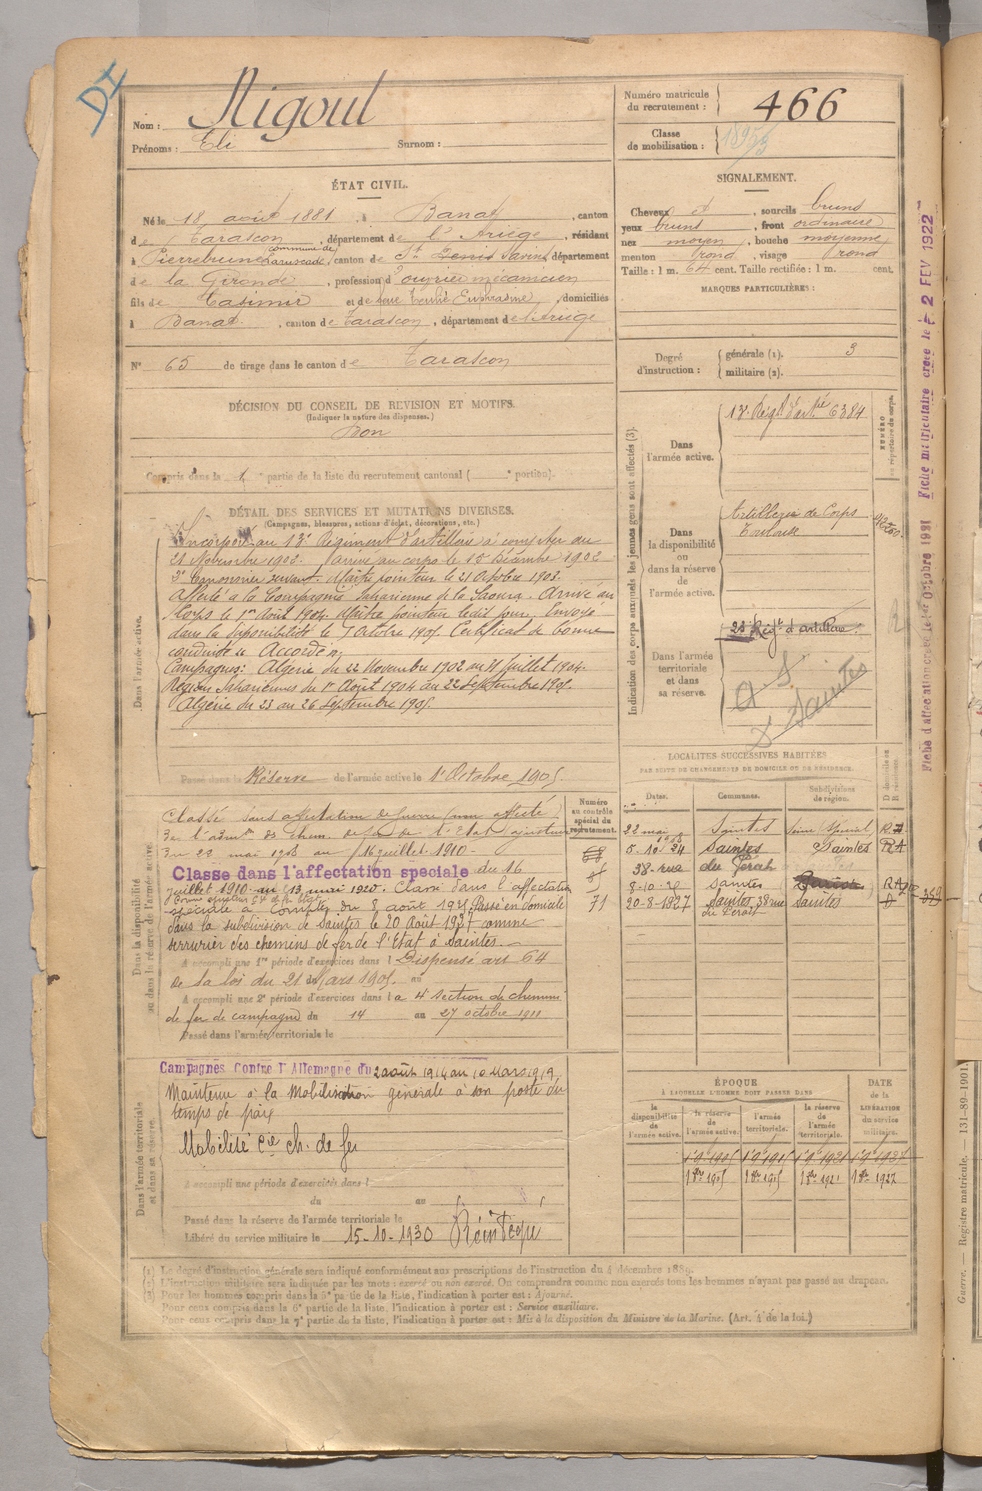 DI
Nom : Rigoul
Prénoms : Eli Surnom :
Numéro matricule du recrutement : 466
Classe de mobilisation :
ÉTAT CIVIL.
Né le 18 août 1881, à Banat, canton
de Tarascon, département de l'Ariège, résidant
à Pierrebrune commune de Laruscade, canton de St Denis Savin, département
de la Gironde, profession d'ouvrier mécanicien
fils de Casimir et de , domiciliés
à Banat, canton de Tarascon, département de l'Ariège
N° 65 de tirage dans le canton de Tarascon
DÉCISION DU CONSEIL DE REVISION ET MOTIFS.
(Indiquer la nature des dispenses.)
Bon
Compris dans la 1e partie de la liste du recrutement cantonal ( e portion).
SIGNALEMENT.
Cheveux et , sourcils bruns
yeux bruns, front ordinaire
nez moyen, bouche moyenne
menton rond, visage rond
Taille : 1 m. 64 cent. Taille rectifiée : 1 m. cent.
MARQUES PARTICULIÈRES :
Degré d'instruction : générale (1). 3
militaire (2).
DÉTAIL DES SERVICES ET MUTATIONS DIVERSES.
(Campagnes, blessures, actions d'éclat, décorations, etc.)
Dans l'armée active.
Incorporé au 13e Régiment d'artillerie à compter du
21 Novembre 1902. Arrivé au corps le 15 Décembre 1902
2e Canonnier servant. Maître pointeur le 21 Octobre 1903.
Affecté à la Compagnie Saharienne de la Saoura. Arrivé au
Corps le 1er Août 1904. Maître pointeur ledit jour. Envoyé
dans la disponibilité le 1 Octobre 1905. Certificat de bonne
conduite "Accordé".
Campagnes: Algérie du 22 Novembre 1902 au 31 Juillet 1904.
Région Sahariennes du 1er Août 1904 au 22 Septembre 1905.
Algérie du 23 au 26 Septembre 1905.
Passé dans la Réserve de l'armée active le 1er Octobre 1905.
Indication des corps auxquels les jeunes gens sont affectés (3).
NUMÉRO au répertoire du corps.
Dans l'armée active.
13e Régt d'artie 6384
Dans la disponibilité ou dans la réserve de l'armée active.
Artillerie de Corps
Toulouse
23e Régt d'artillerie
Dans l'armée territoriale et dans sa réserve.
a S
Saintes
Fiche d'affectation créée le 1er Octobre 1921 Fiche matriculaire créée le 2 FEV 1922
Dans la disponibilité ou dans la réserve de l'armée active.
Numéro au contrôle spécial du recrutement.
Classé sans affectation de guerre comme affecté
à l'admon des chem. de fer de l'Etat ajusteur
22 mai 1908 au 16 juillet 1910
Classe dans l'affectation speciale du 16
juillet 1910 au 13 mai 1920. Classé dans l'affectation
spéciale à compter du 8 août 1921 Passé en domicile
dans la subdivision de Saintes le 20 Août 1927 comme
serrurier des chemins de fer de l'Etat à Saintes.
71
A accompli une 1re période d'exercices dans l Dispensé art 64
de la loi du 21 Mars 1905. au
A accompli une 2e période d'exercices dans l a 4e section de chemins
de fer de campagne du 14 au 27 octobre 1911
Passé dans l'armée territoriale le
LOCALITÉS SUCCESSIVES HABITÉES
PAR SUITE DE CHANGEMENTS DE DOMICILE OU DE RÉSIDENCE.
Dates. Communes. Subdivisions de région. D domicile ou R résidence.
22 mai 1908 Saintes R
5-10-24 Saintes Saintes RA
38 rue du Pérat
8-10-25 Saintes RA
20-8-1927 Saintes, 38 rue du Pérat Saintes D
359
Dans l'armée territoriale et dans sa réserve.
Campagnes Contre l'Allemagne du 2 août 1914 au 10 Mars 1919
Maintenu à la Mobilisation générale à son poste du
temps de paix
Mobilisé Cie ch. de fer
A accompli une période d'exercices dans l
du au
Passé dans la réserve de l'armée territoriale le
Libéré du service militaire le 15-10-1930
ÉPOQUE
À LAQUELLE L'HOMME DOIT PASSER DANS
la disponibilité de l'armée active. la réserve de l'armée active. l'armée territoriale. la réserve de l'armée territoriale. DATE de la LIBÉRATION du service militaire.
1er 8re 1905 1er 8re 1915 1er 8re 1921 1er 8re 1927
(1) Le degré d'instruction générale sera indiqué conformément aux prescriptions de l'instruction du 4 décembre 1889.
(2) L'instruction militaire sera indiquée par les mots : exercé ou non exercé. On comprendra comme non exercés tous les hommes n'ayant pas passé au drapeau.
(3) Pour les hommes compris dans la 5e partie de la liste, l'indication à porter est : Ajourné.
Pour ceux compris dans la 6e partie de la liste, l'indication à porter est : Service auxiliaire.
Pour ceux compris dans la 7e partie de la liste, l'indication à porter est : Mis à la disposition du Ministre de la Marine. (Art. 4 de la loi.)
Guerre. — Registre matricule. — 131-89-1901.